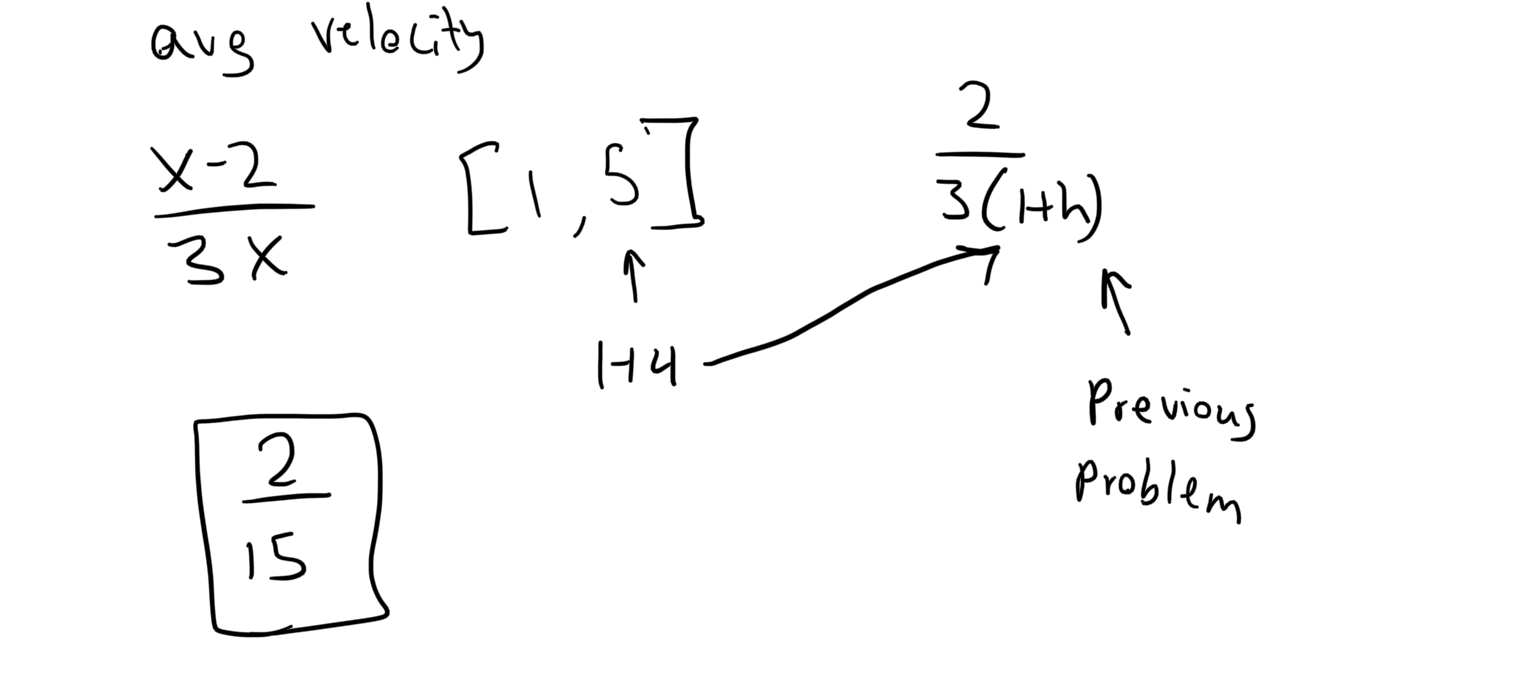 avg velocity
x-2
3x
[1,5]
2
3(1+h)
↑
1+4
Previous
Problem
2
15